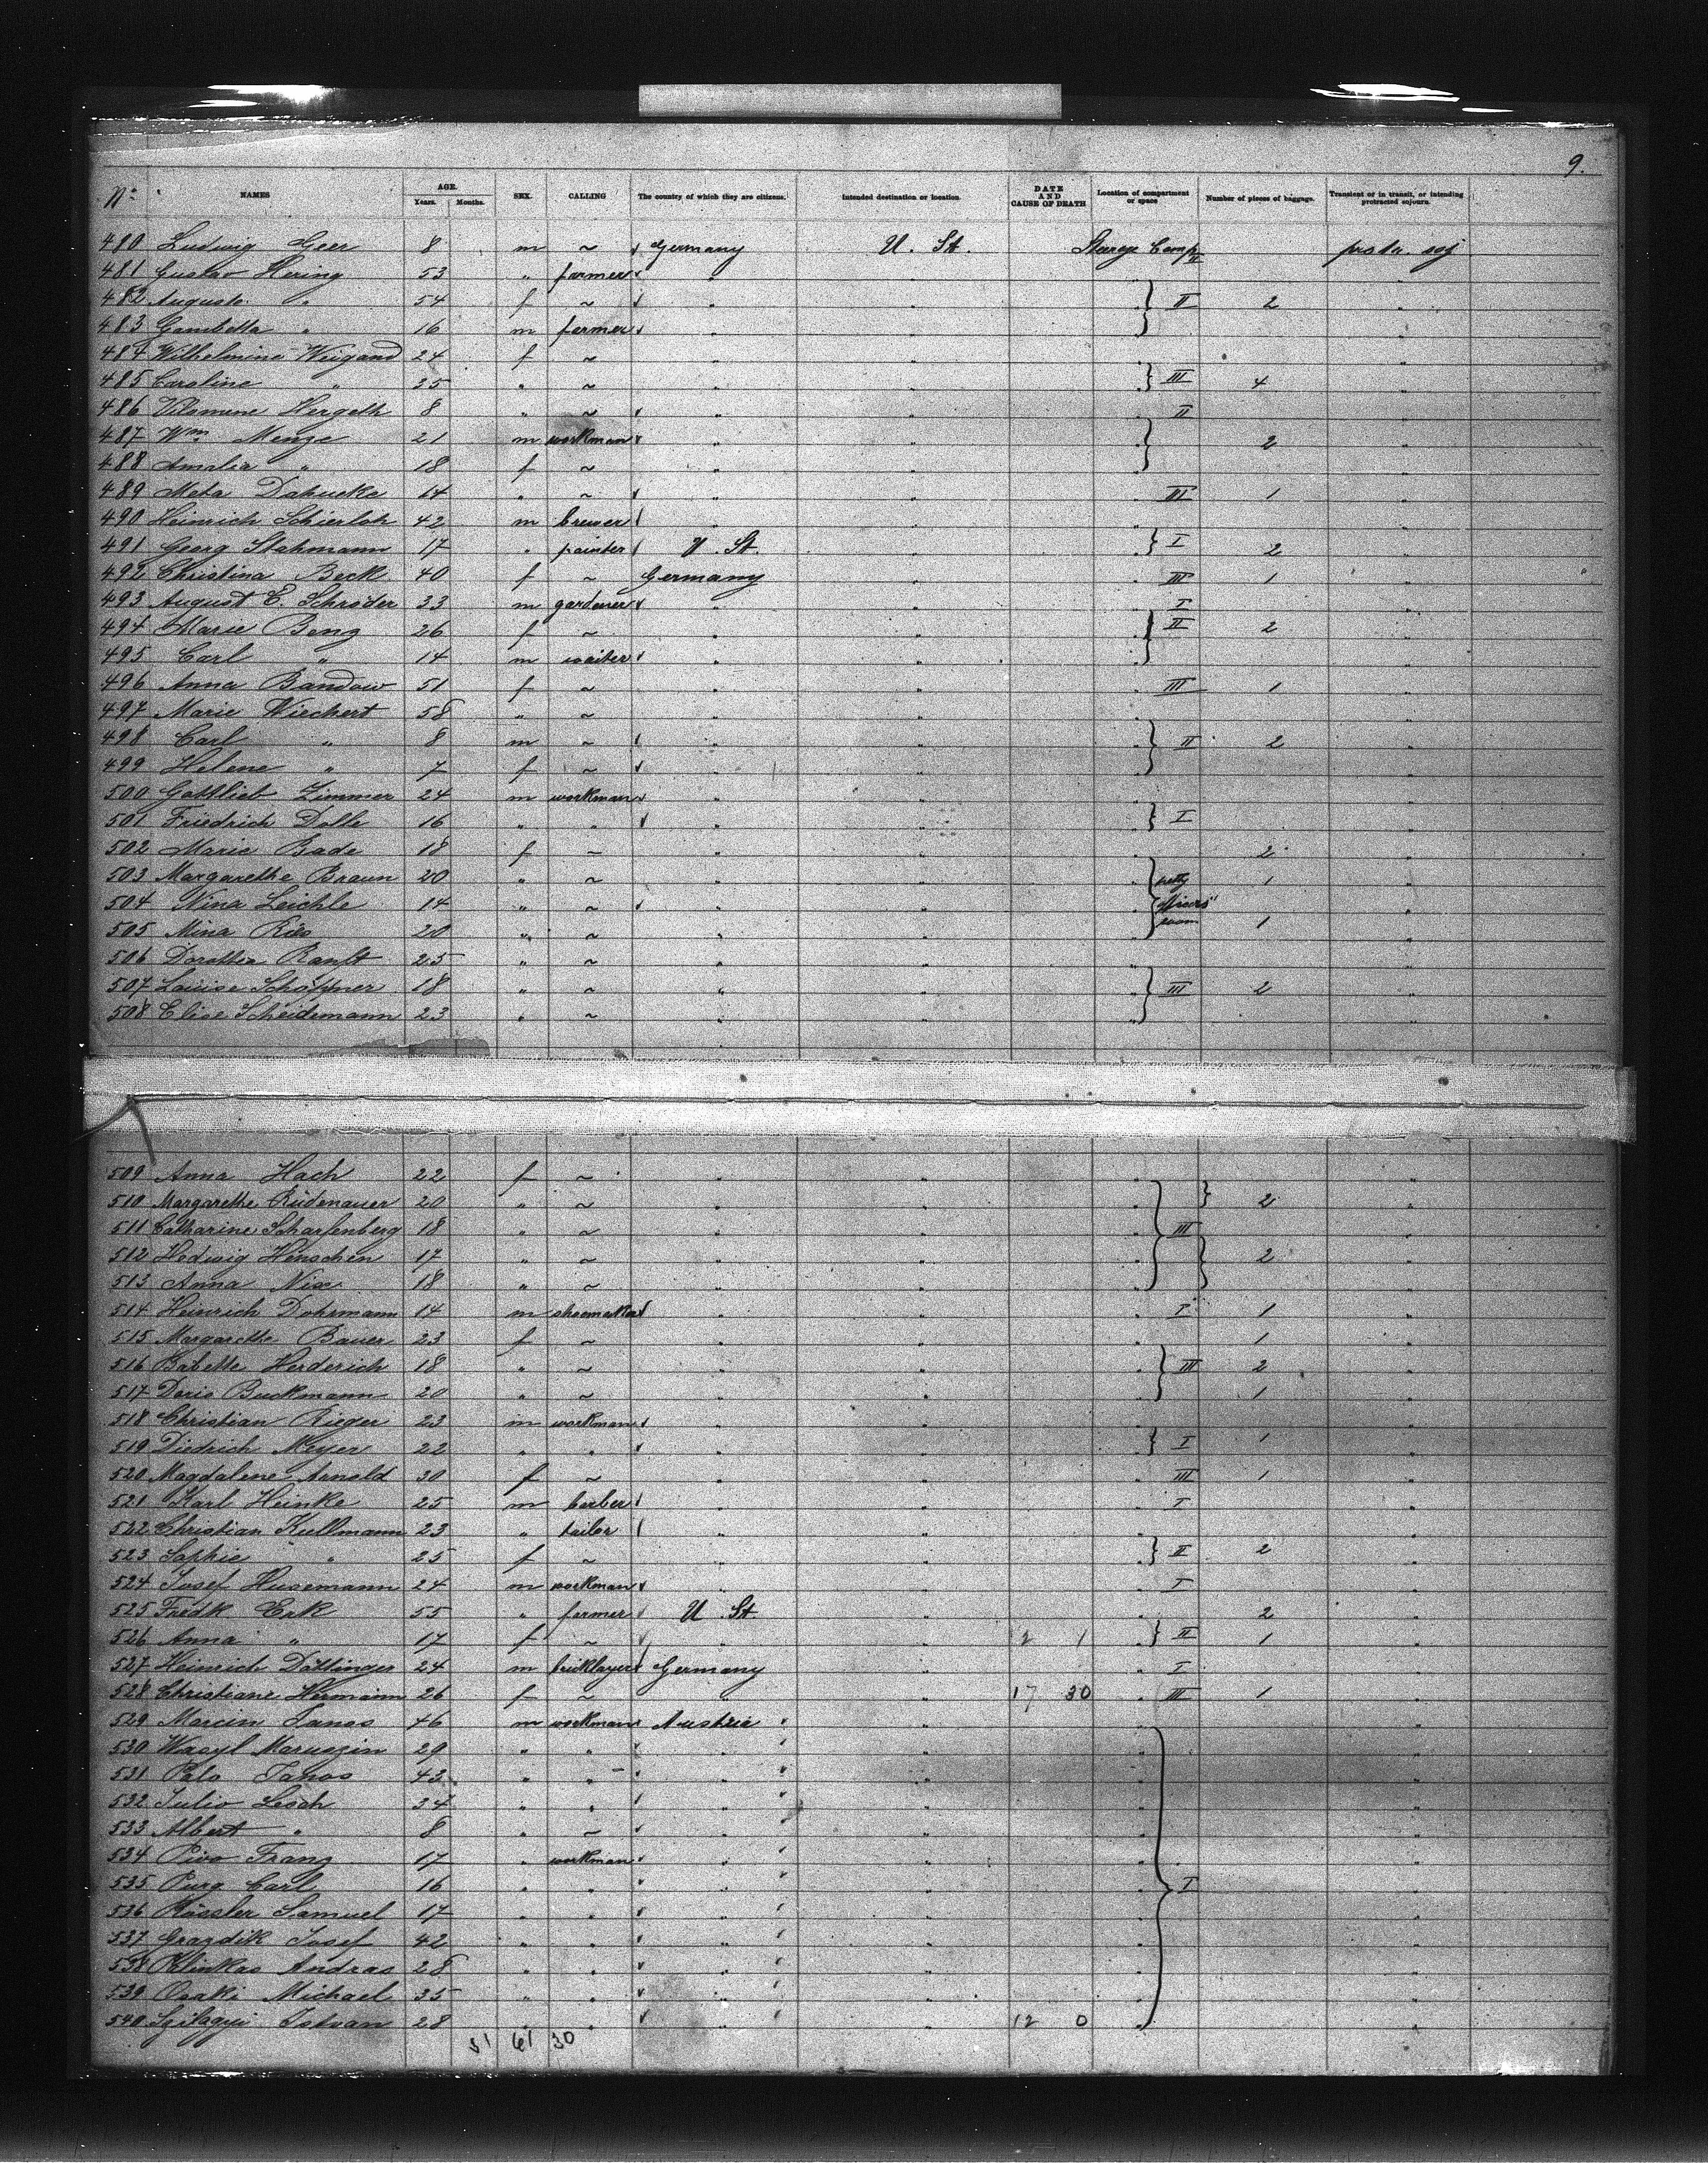 9.
Nº NAMES AGE. Years. Months. SEX. CALLING The country of which they are citizens. Intended destination or location. DATE AND CAUSE OF DEATH Location of compartment or space Number of pieces of baggage. Transient or in transit, or intending protracted sojourn.
480 Ludwig Geer 8 m ~ Germany U. St. Steerage Comp II
481 Gustav Huing 53 " farmer " " " "
482 Auguste " 54 f ~ " " " II 2 "
483 Gambetta " 16 m farmer " " " "
484 Wilhelmine Weigand 24 f ~ " " " "
485 Caroline " 35 " ~ " " " III 4 "
486 Hergeth 8 " ~ " " " II "
487 Wm Menge 21 m workman " " " 2 "
488 Amalia " 18 f ~ " " " "
489 Meta Dahucke 14 " ~ " " " III 1 "
490 Heinrich Schierloh 42 m brewer " " " "
491 Georg Stahmann 17 " painter U. St. " " I 2 "
492 Christina Beck 40 f ~ Germany " " III 1 "
493 August E. Schröder 33 m gardener " " " I "
494 Marie Beng 26 f ~ " " " II 2 "
495 Carl " 14 m waiter " " " "
496 Anna Bandow 51 f ~ " " " III 1 "
497 Marie Wiechert 58 " ~ " " " "
498 Carl " 8 m ~ " " " II 2 "
499 Helene " 7 f ~ " " " "
500 Gottlieb Zimmer 24 m workman " " " "
501 Friedrich Dolle 16 " " " " " I "
502 Marie Bade 18 f ~ " " " 2 "
503 Margarethe Braun 20 " ~ " " " petty 1 "
504 Nina Leichle 14 " ~ " " " officers' "
505 Mina Ries 20 " ~ " " " room 1 "
506 Dorothea Ranft 25 " ~ " " " "
507 Louise Schöpner 18 " ~ " " " III 2 "
508 Elise Scheidemann 23 " ~ " " " "
509 Anna Hach 22 f ~ " " " "
510 Margarethe Rüdenauer 20 " ~ " " " 2 "
511 Catharine Scharfenberg 18 " ~ " " " III "
512 Hedwig Hinschen 17 " ~ " " " 2 "
513 Anna Nix 18 " ~ " " " "
514 Heinrich Dohrmann 14 m shoemaker " " " I 1 "
515 Margarethe Bauer 23 f ~ " " " 1 "
516 Babette Herderich 18 " ~ " " " III 2 "
517 Doris Buckmann 20 " ~ " " " 1 "
518 Christian Rieger 23 m workman " " " "
519 Diedrich Meyer 22 " " " " " I 1 "
520 Magdalene Arnold 30 f ~ " " " III 1 "
521 Karl Heinke 25 m barber " " " I "
522 Christian Kullmann 23 " tailor " " " "
523 Sophie " 25 f ~ " " " II 2 "
524 Josef Husemann 24 m workman " " " I "
525 Fredk Erk 55 " farmer U. St " " 2 "
526 Anna " 17 f ~ " " 2 1 " II 1 "
527 Heinrich Döttinger 24 m bricklayer Germany " " I "
528 Christiane Hermann 26 f ~ " " 17 30 " III 1 "
529 Marcin Janos 46 m workman Austria " " "
530 Wasyl Maruszin 29 " " " " " "
531 Palo Janos 43 " " " " " "
532 Julio Lesch 34 " " " " " "
533 Albert " 8 " ~ " " " "
534 Pivo Franz 17 " workman " " " "
535 Purg Carl 16 " " " " " I "
536 Rössler Samuel 17 " " " " " "
537 Grazdik Josef 42 " " " " " "
538 Klinkas Andras 28 " " " " " "
539 Osaki Michael 35 " " " " " "
540 Szilagyi Istvan 28 " " " " 12 0 " "
51 61 30